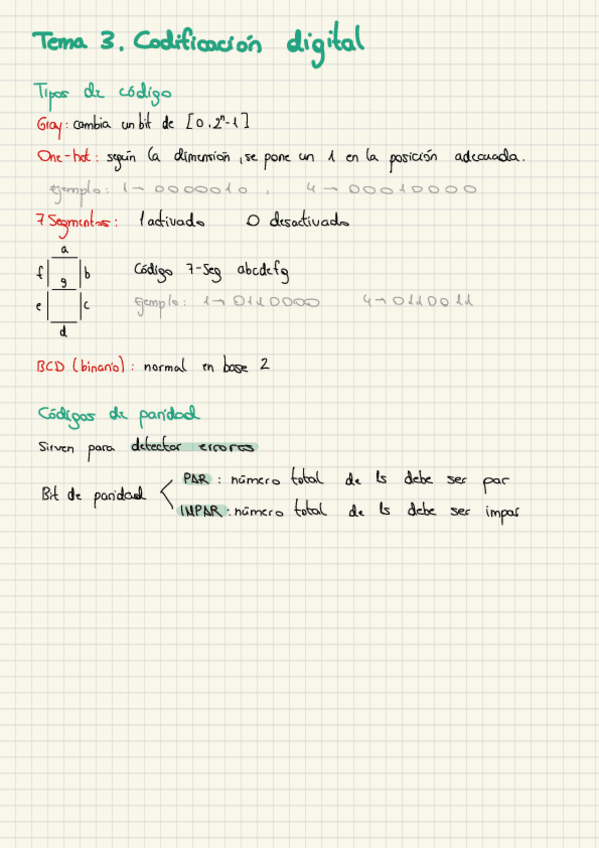 Tema 3. Codificación digital
Tipos de código
Gray: cambia un bit de [0, 2ⁿ-1]
One-hot: según la dimensión, se pone un 1 en la posición adecuada.
ejemplo: 1→ 0000010, 4→ 00010000
7 Segmentos: 1 activado 0 desactivado
a
f g b
e c
d
Código 7-seg abcdefg
ejemplo: 1→ 0110000 4→ 0110011
BCD (binario): normal en base 2
Códigos de paridad
Sirven para detectar errores
Bit de paridad
PAR: número total de 1s debe ser par
IMPAR: número total de 1s debe ser impar